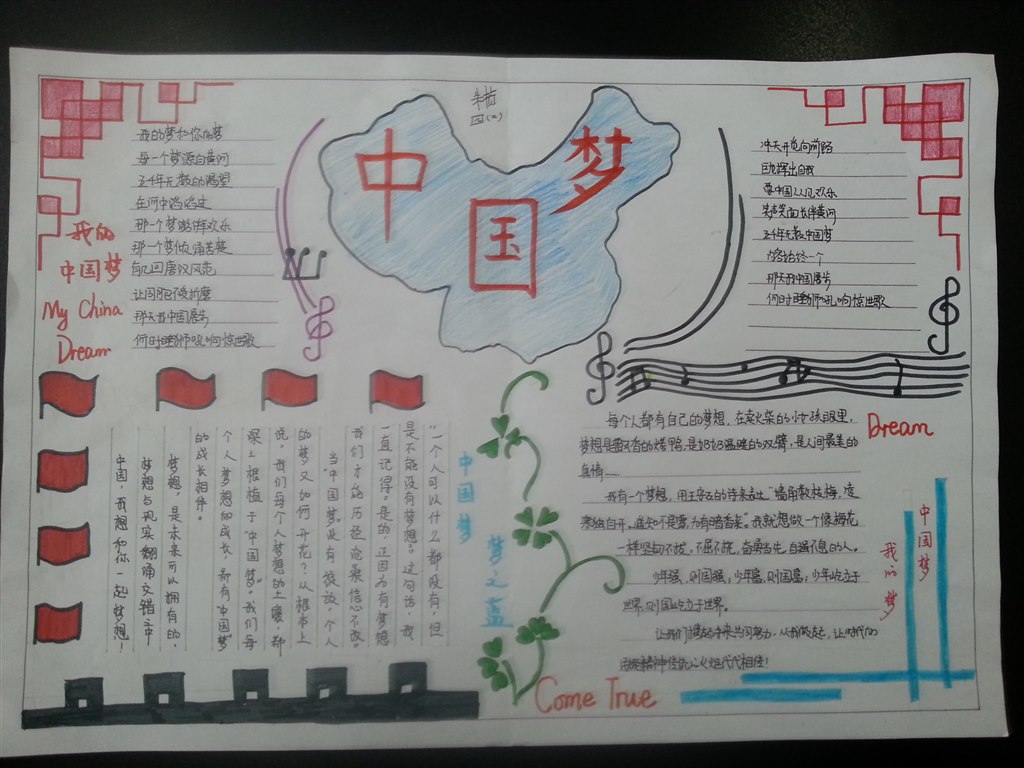 朱哲
四(2)
中国梦
我的
中国梦
My China
Dream
我的梦和你的梦
每一个梦源自黄河
五千年无数的渴望
在河中滔滔过
那一个梦澎湃欢乐
那一个梦倾涌苦楚
有几回唐汉风范
让同胞不受折磨
那天我中国展步
何时睡狮吼响惊世歌
冲天开觅向前路
巨龙挥出自我
要中国人人见欢乐
笑声笑面长伴黄河
五千年无数中国梦
内容始终一个
那天我中国展步
何时睡狮吼响惊世歌
"一个人可以什么都没有,但
是不能没有梦想。"这句话,我
一直记得。是的,正因为有梦想
我们才能历经沧桑信念不改。
当"中国梦"没有绽放,个人
的梦又如何开花?从根本上
说,我们每个人梦想的土壤,都
深深根植于"中国梦"。我们每
个人梦想的成长,都有"中国梦"
的成长相伴。
梦想,是未来可以拥有的,
梦想与现实翻涌交错之中
中国,我想和你一起梦想!
中国梦
梦之蓝
每个人都有自己的梦想,在卖火柴的小女孩眼里,
梦想是喷香的烤鹅,是奶奶温暖的双臂,是人间最美的
真情……
我有一个梦想,用王安石的诗来表达"墙角数枝梅,凌
寒独自开。遥知不是雪,为有暗香来"。我就想做一个像梅花
一样坚韧不拔,不屈不挠,奋勇当先,自强不息的人。
少年强,则国强;少年富,则国富;少年屹立于
世界,则国屹立于世界。
让我们携起手来共同努力,从我做起,让时代的
精神代代相传!
Dream
中国梦
我的梦
Come True